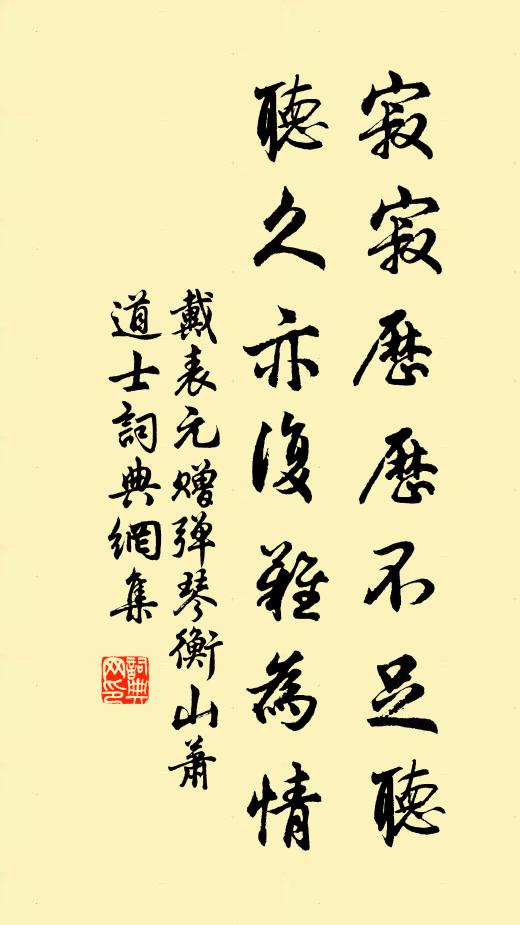 寂寂歷歷不足聽
聽久亦復難為情
戴表元赠弹琴衡山萧
道士詞典網集
詞典
网印